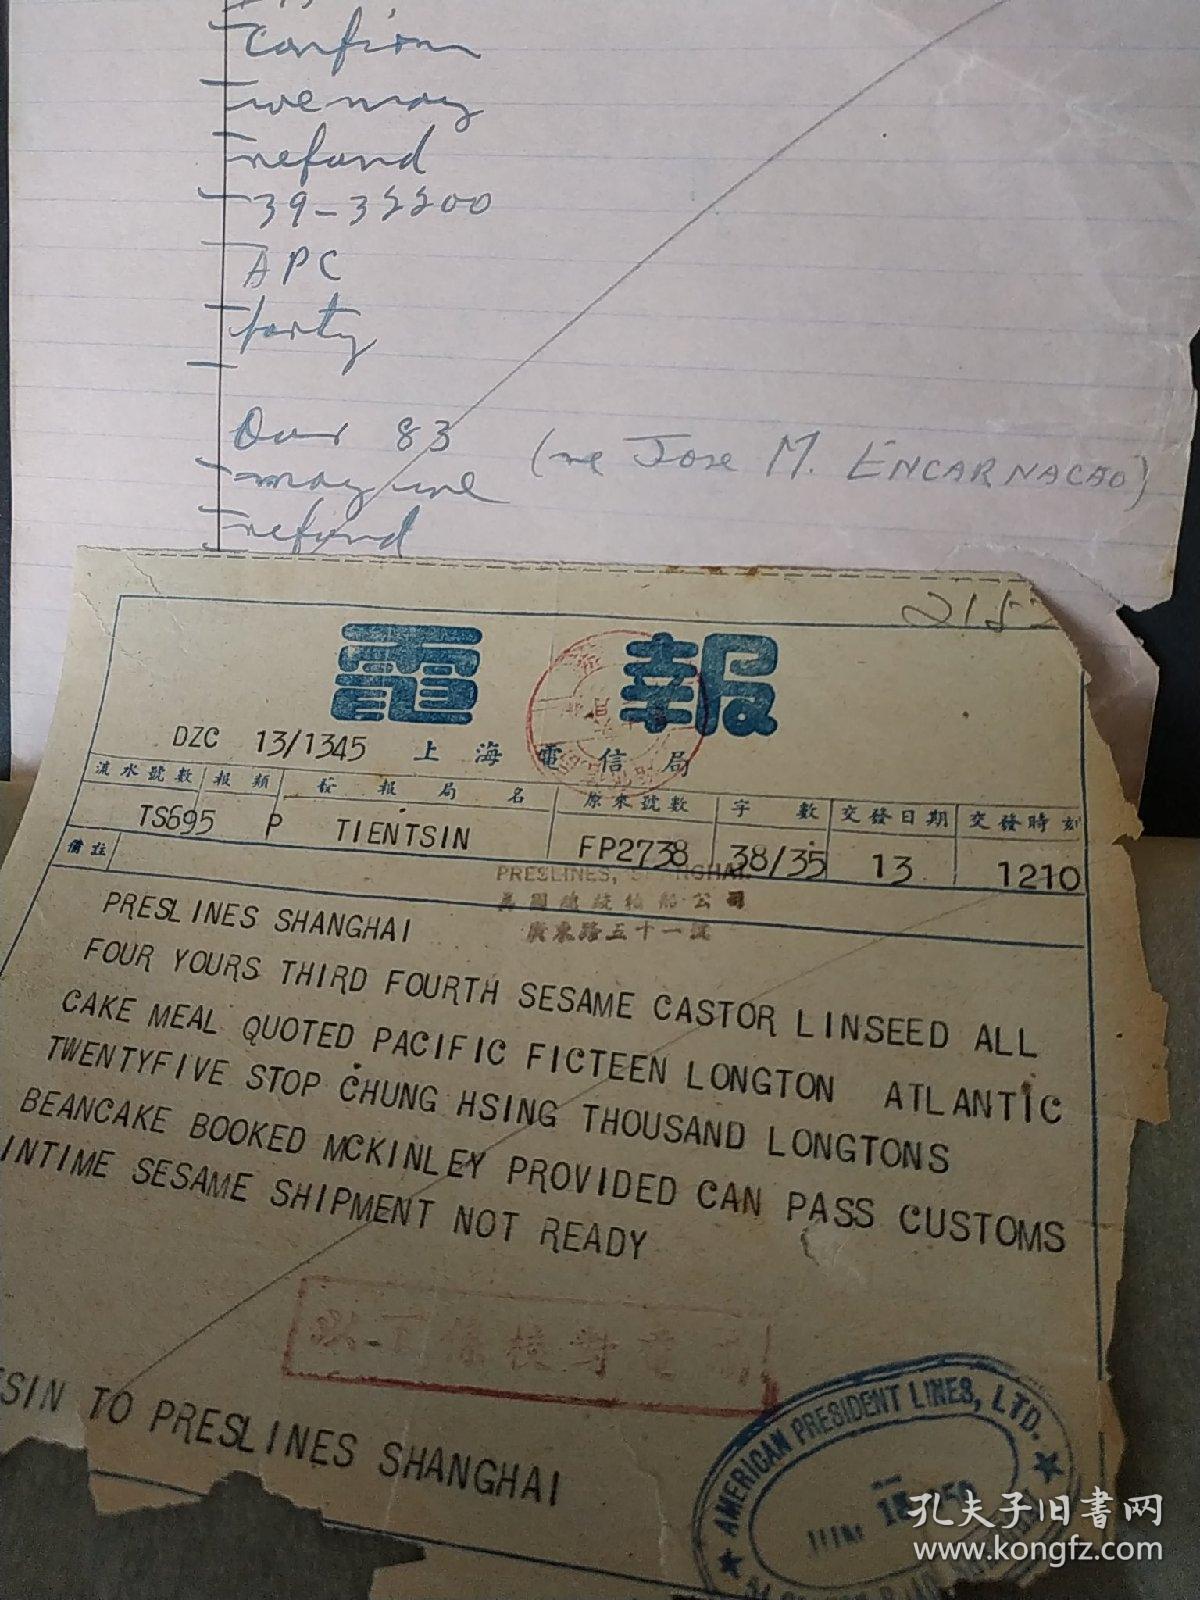 Confirm
we may
refund
39-35500
APC
party
Our 83 (re Jose M. ENCARNACAO)
may we
refund
電報
DZC 13/1345 上海電信局
流水號數 報類 發報局名 原來號數 字數 交發日期 交發時刻
TS695 P TIENTSIN FP2738 38/35 13 1210
備註
PRESLINES, SHANGHAI.
美國總統輪船公司
廣東路五十一號
PRESLINES SHANGHAI
FOUR YOURS THIRD FOURTH SESAME CASTOR LINSEED ALL
CAKE MEAL QUOTED PACIFIC FICTEEN LONGTON ATLANTIC
TWENTYFIVE STOP CHUNG HSING THOUSAND LONGTONS
BEANCAKE BOOKED MCKINLEY PROVIDED CAN PASS CUSTOMS
INTIME SESAME SHIPMENT NOT READY
SIN TO PRESLINES SHANGHAI
AMERICAN PRESIDENT LINES, LTD.
孔夫子旧書网
www.kongfz.com